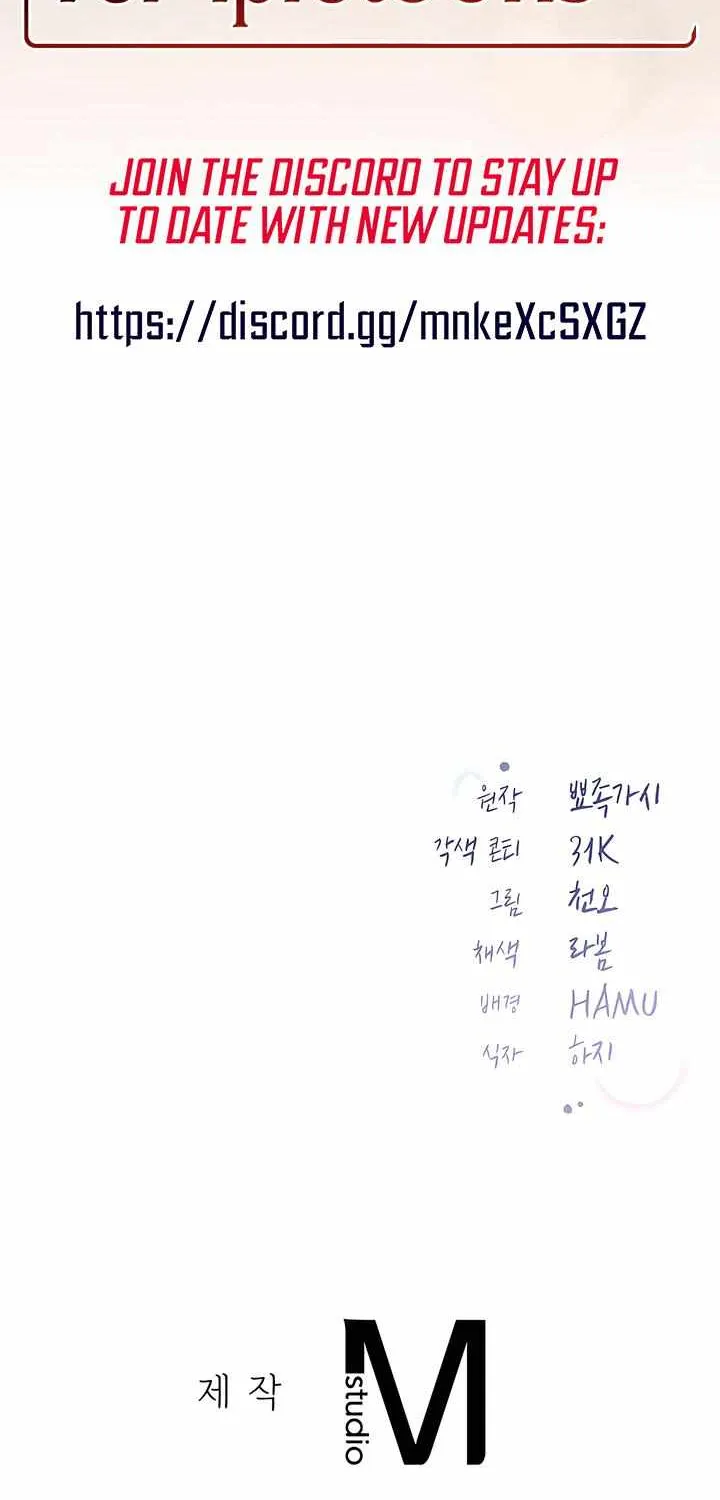 JOIN THE DISCORD TO STAY UP
TO DATE WITH NEW UPDATES:
https://discord.gg/mnkeXcSXGZ
원작 뾰족가시
각색 콘티 31K
그림 천오
채색 라봄
배경 HAMU
식자 하지
제작 M studio